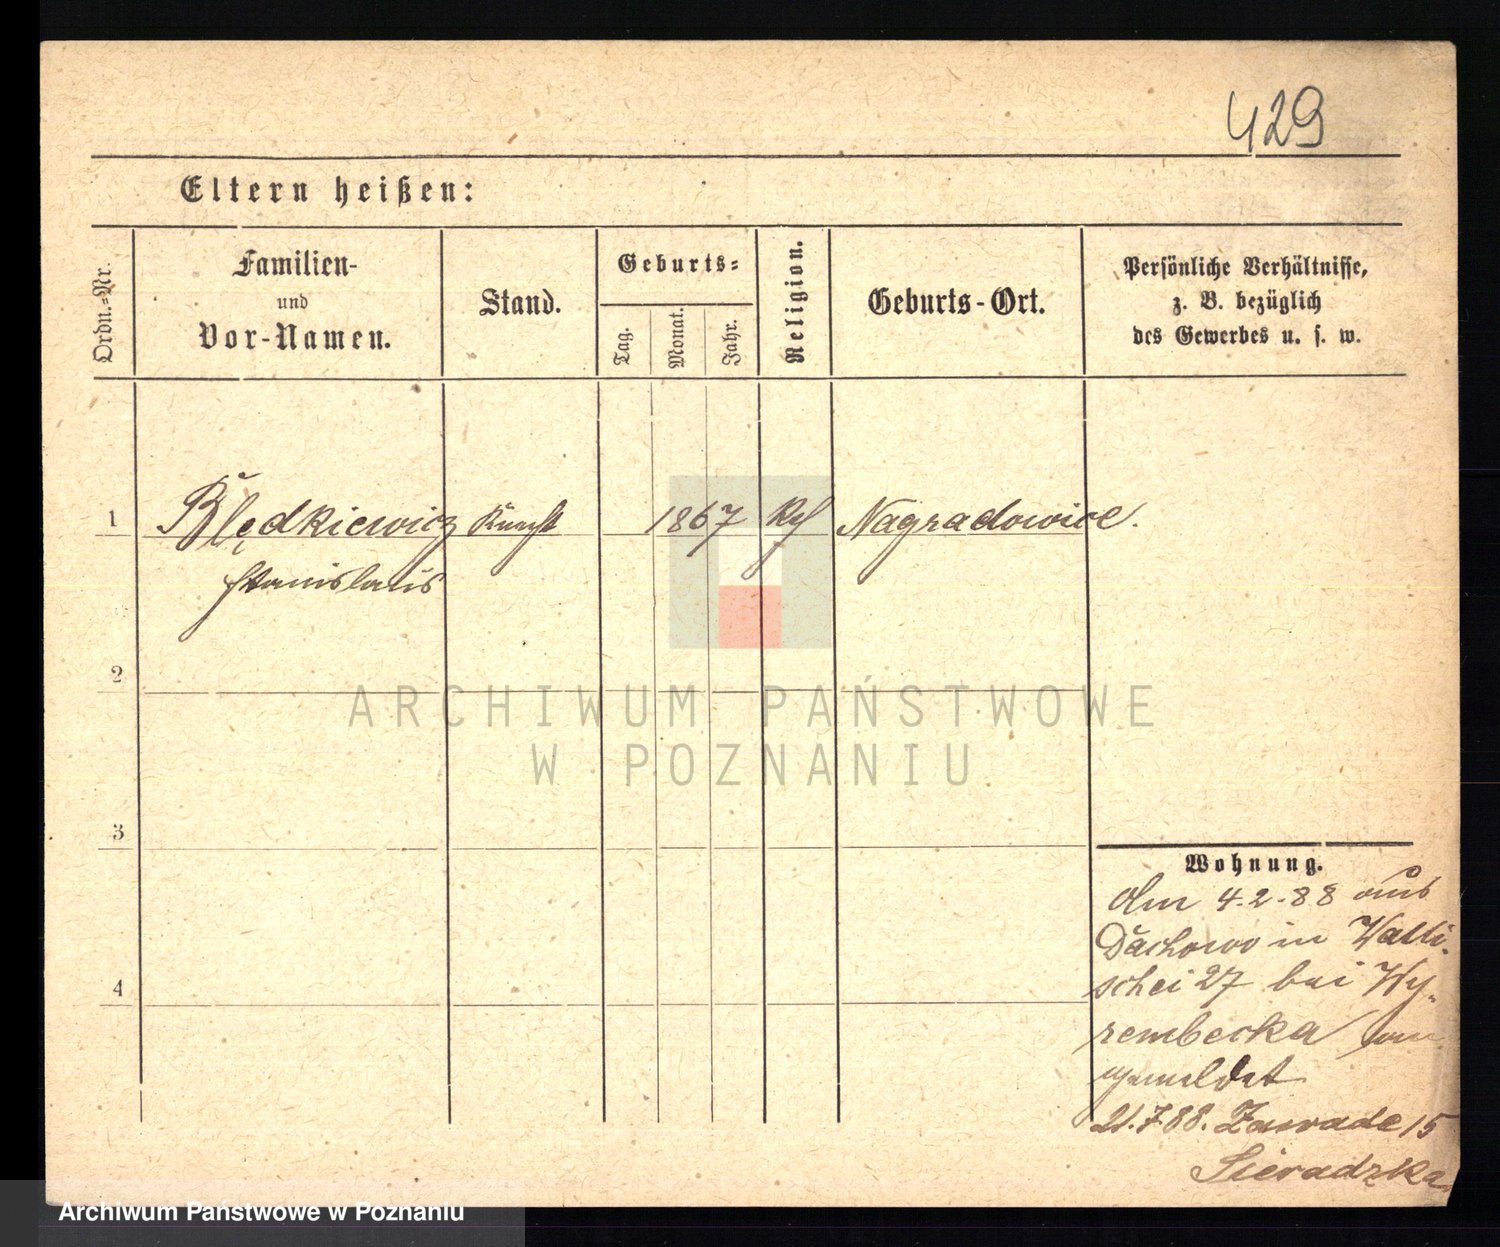 429
Eltern heißen:
Ordn.-Nr.
Familien-
und
Vor-Namen.
Stand.
Geburts-
Tag.
Monat.
Jahr.
Religion.
Geburts-Ort.
Persönliche Verhältnisse,
z. B. bezüglich
des Gewerbes u. s. w.
1
Błędkiewicz
Stanislaus
1867
Nagradowice.
2
3
4
Wohnung.
Am 4.2.88 aus
Dachowo in Walli-
schei 27 bei Wy-
rembecka an
gemeldet
21.7.88. Zawade 15
Sieradzka
ARCHIWUM PAŃSTWOWE
W POZNANIU
Archiwum Państwowe w Poznaniu